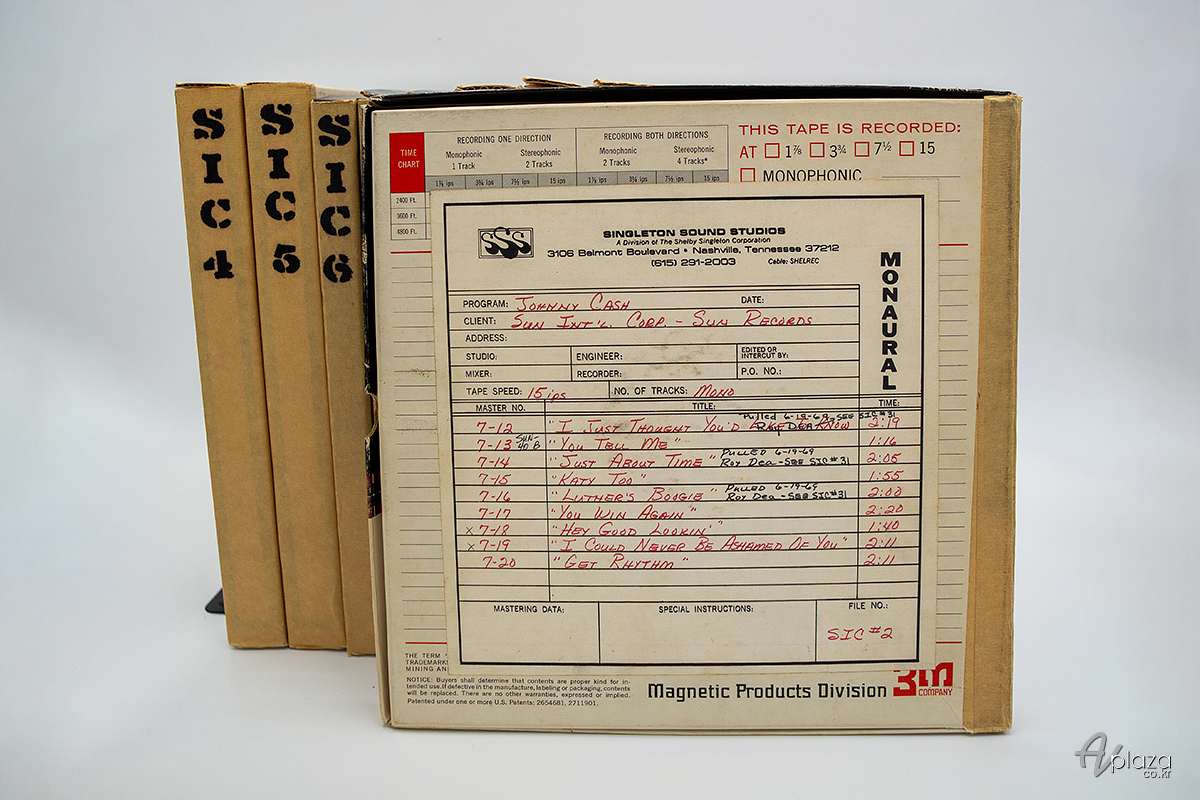 SIC 4
SIC 5
SIC 6
TIME CHART
RECORDING ONE DIRECTION
RECORDING BOTH DIRECTIONS
Monophonic 1 Track
Stereophonic 2 Tracks
Monophonic 2 Tracks
Stereophonic 4 Tracks*
1⅞ ips 3¾ ips 7½ ips 15 ips 1⅞ ips 3¾ ips 7½ ips 15 ips
2400 Ft.
3600 Ft.
4800 Ft.
THIS TAPE IS RECORDED:
AT □ 1⅞ □ 3¾ □ 7½ □ 15
□ MONOPHONIC
SSS
SINGLETON SOUND STUDIOS
A Division of The Shelby Singleton Corporation
3106 Belmont Boulevard • Nashville, Tennessee 37212
(615) 291-2003 Cable: SHELREC
MONAURAL
PROGRAM: JOHNNY CASH DATE:
CLIENT: SUN INT'L. CORP. - SUN RECORDS
ADDRESS:
STUDIO: ENGINEER: EDITED OR INTERCUT BY:
MIXER: RECORDER: P.O. NO.:
TAPE SPEED: 15 ips NO. OF TRACKS: MONO
MASTER NO. TITLE: TIME:
Pulled 6-19-69 SEE SIC #31
7-12 "I JUST THOUGHT YOU'D LIKE TO KNOW 2:19
ROY DEA
7-13 SUN-40 B "YOU TELL ME" 1:16
PULLED 6-19-69
7-14 "JUST ABOUT TIME" Roy Dea - SEE SIC #31 2:05
7-15 "KATY TOO" 1:55
PULLED 6-19-69
7-16 "LUTHER'S BOOGIE" Roy Dea - SEE SIC #31 2:00
7-17 "YOU WIN AGAIN" 2:20
x 7-18 "HEY GOOD LOOKIN'" 1:40
x 7-19 "I COULD NEVER BE ASHAMED OF YOU" 2:11
7-20 "GET RHYTHM" 2:11
MASTERING DATA: SPECIAL INSTRUCTIONS: FILE NO.:
SIC #2
THE TERM
TRADEMARKS
MINING AN
NOTICE: Buyers shall determine that contents are proper kind for in-
tended use. If defective in the manufacture, labeling or packaging, contents
will be replaced. There are no other warranties, expressed or implied.
Patented under one or more U.S. Patents: 2654681, 2711901.
Magnetic Products Division 3M COMPANY
AVplaza
co.kr